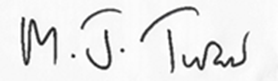 M. J. Turner